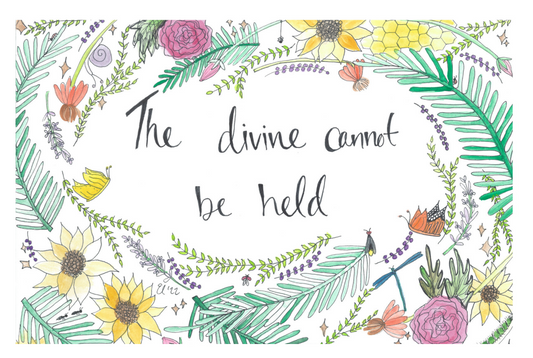 The divine cannot
be held
El '22